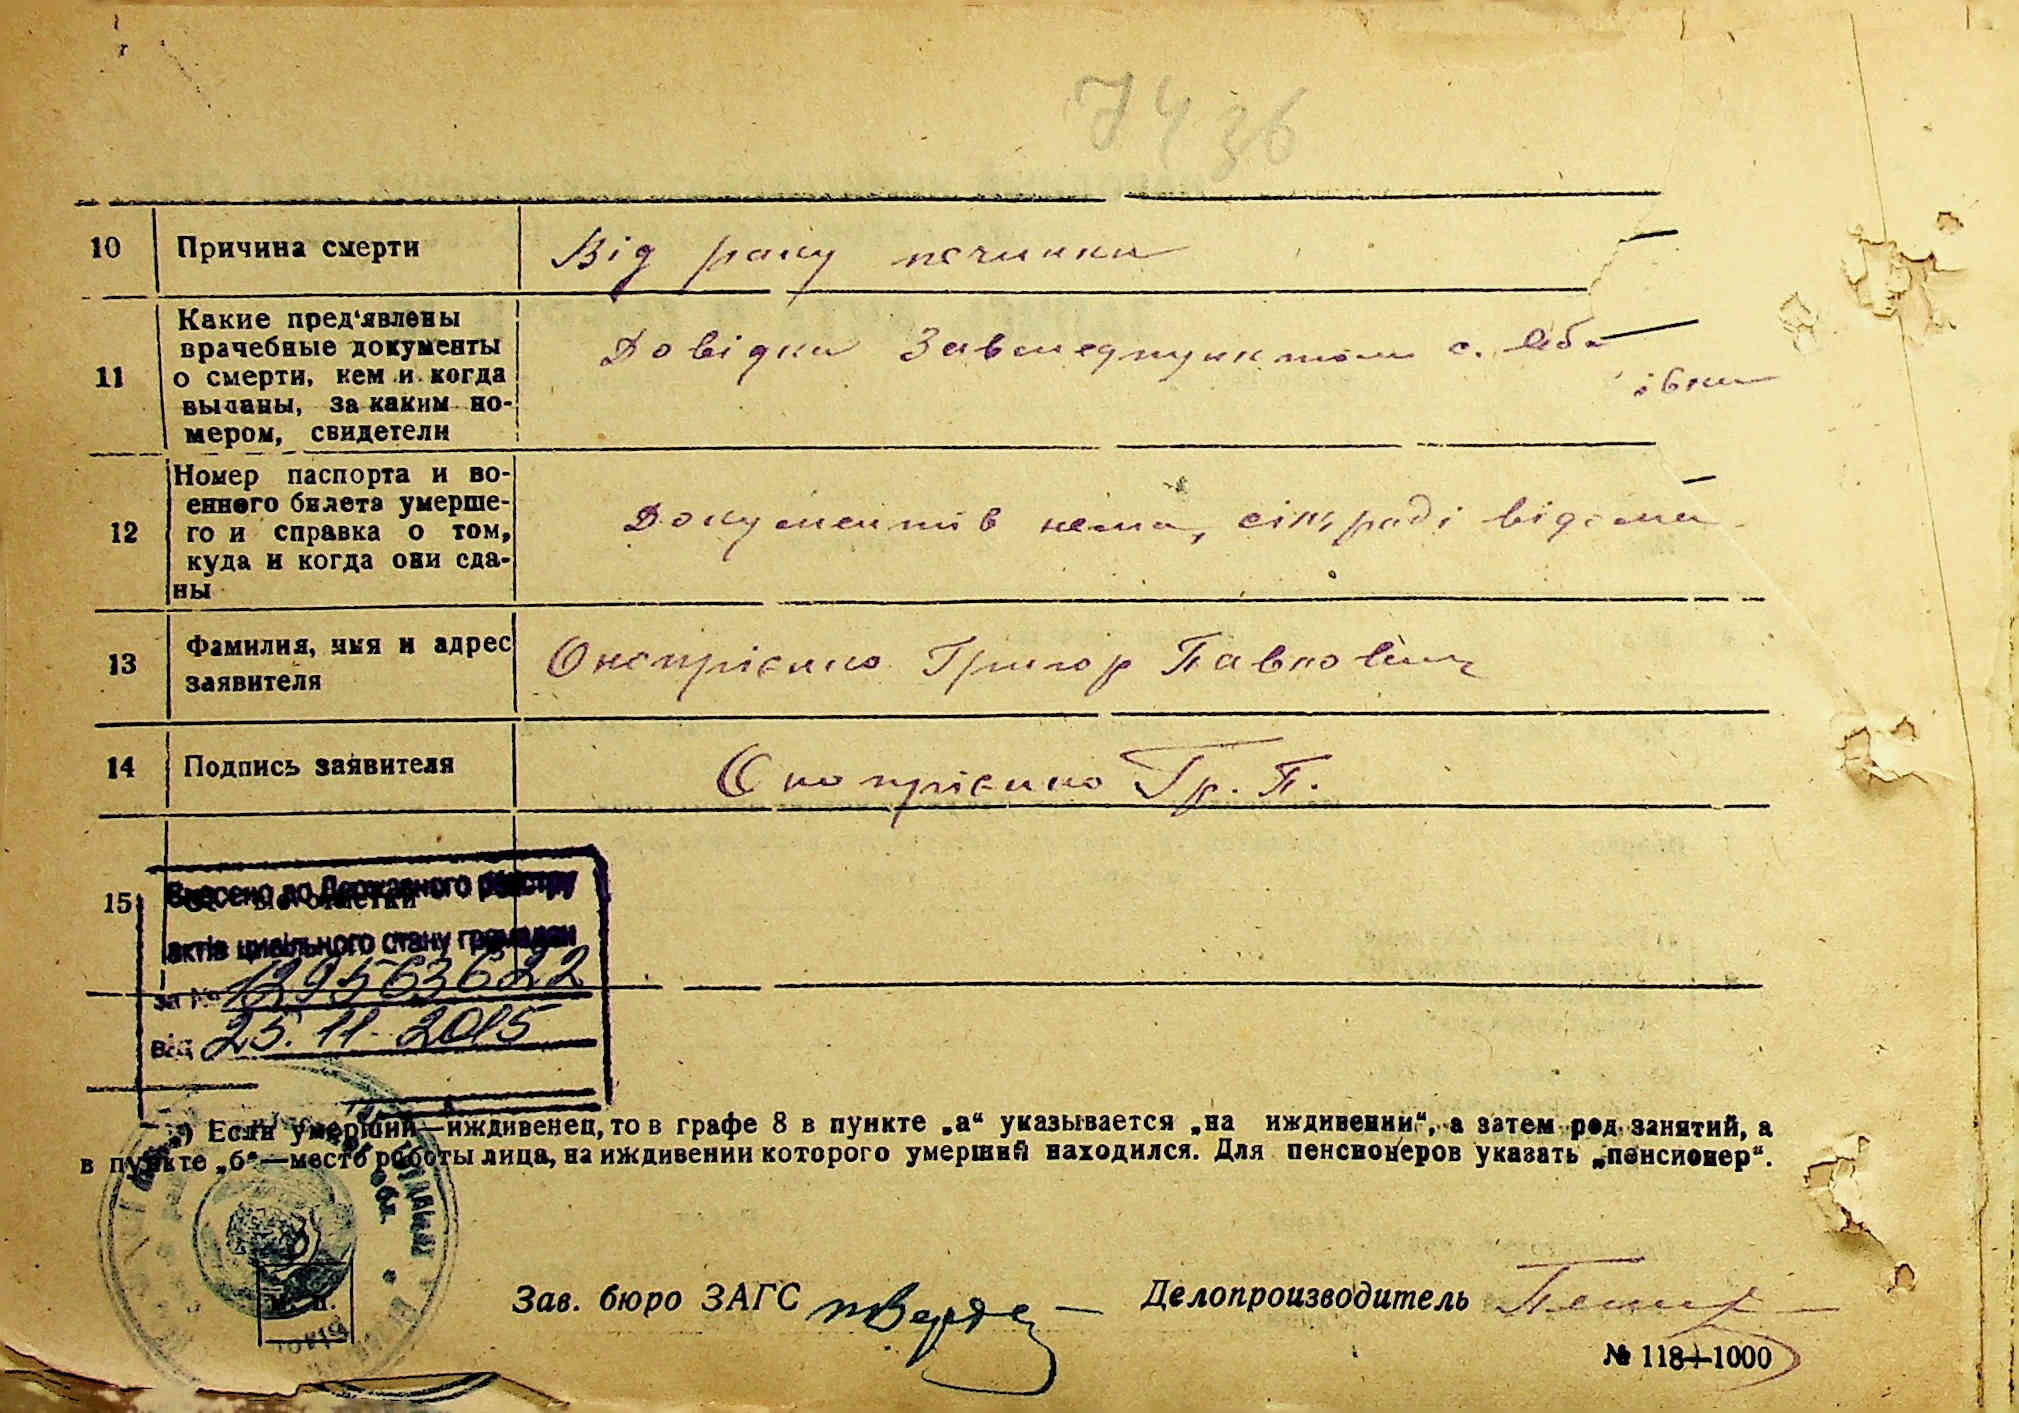 7436
10 Причина смерти Від раку печинки
11 Какие пред'явлены
врачебные документы
о смерти, кем и когда
выданы, за каким но-
мером, свидетели
Довідка Завмедпунктом с.
івки
12 Номер паспорта и во-
енного билета умерше-
го и справка о том,
куда и когда они сда-
ны
Документів нема, сікраді відома
13 Фамилия, имя и адрес
заявителя
Онопрієнко Григор Павлович
14 Подпись заявителя Онопрієнко Гр. П.
15
Внесено до Державного реєстру
актів цивільного стану громадян
за № 129563622
від 25.11.2015
*) Если умерший—иждивенец, то в графе 8 в пункте „а“ указывается „на иждивении“, а затем род занятий, а
в пункте „б“—место работы лица, на иждивении которого умерший находился. Для пенсионеров указать „пенсионер“.
Зав. бюро ЗАГС Делопроизводитель
№ 118—1000